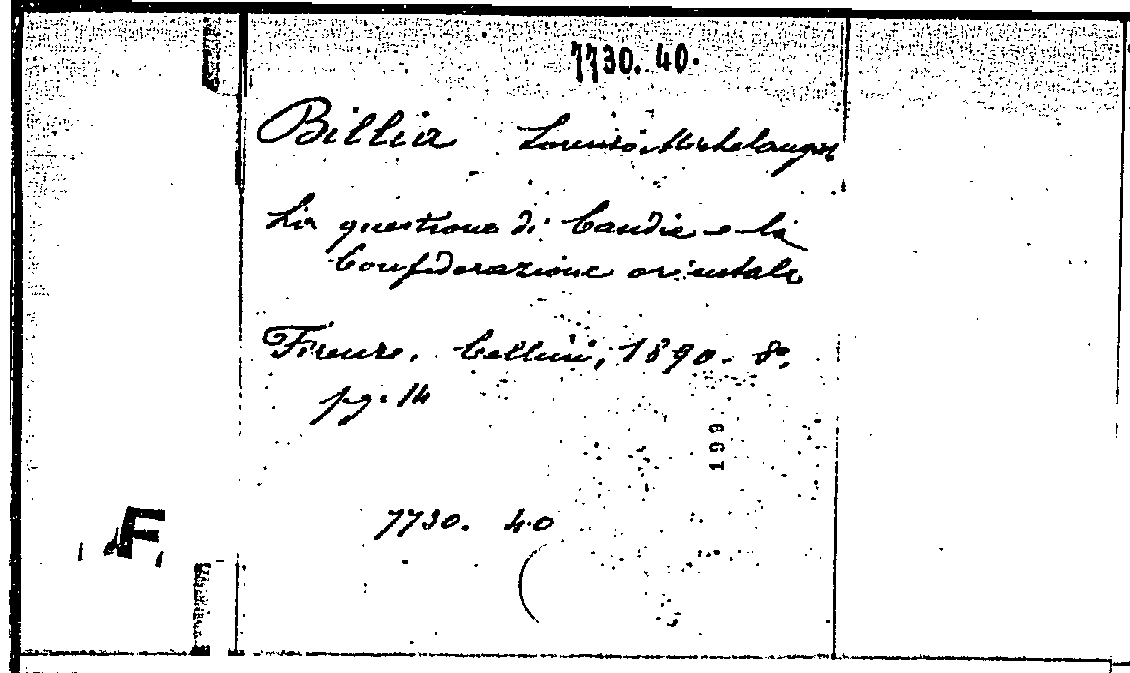 7730. 40.
Billia Lorenzo Michelangelo
La questione di Candia e la
Confederazione orientale
Firenze, Cellini, 1890. 8º.
pg. 14
199
7730. 40
F